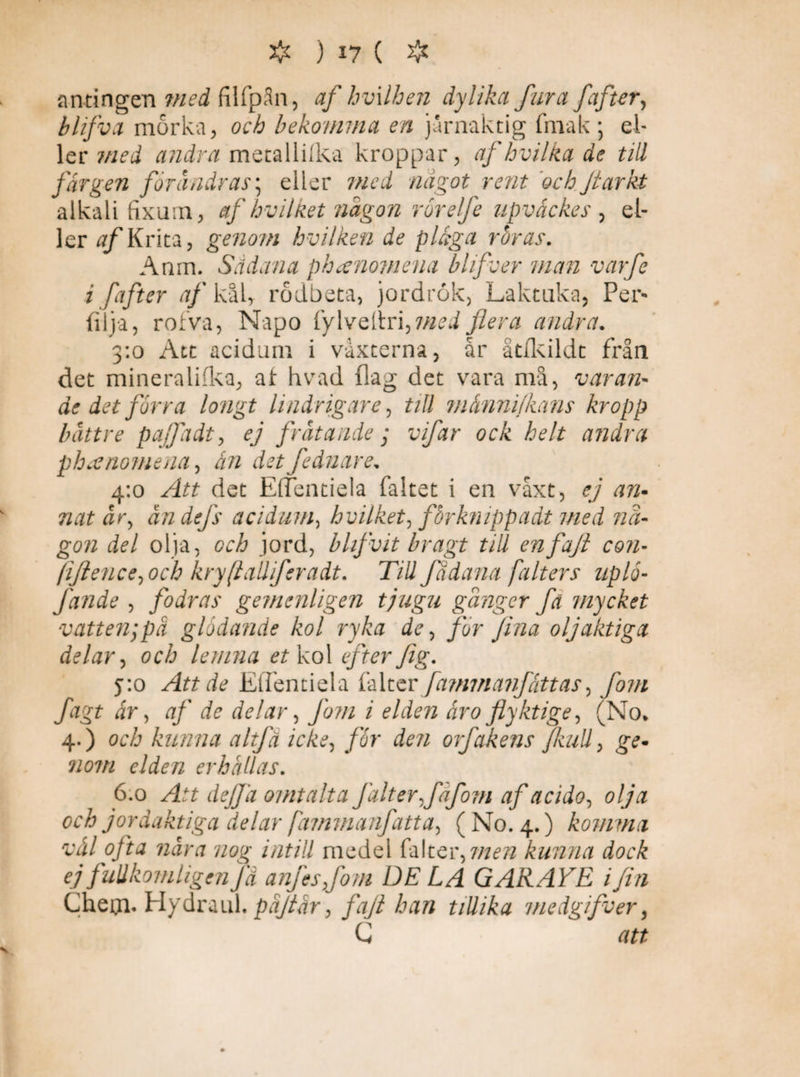 ☼ ) 17 ( ☼
antingen med filſpån, af hvilken dylika ſura ſafter,
blifva mörka, och bekomma en jårnaktig ſmak; el-
ler med andra metalliſka kroppar, af hvilka de till
fårgen förändras; eller med något rent och ſtarkt
alkali fixum, af hvilket någon rörelſe upvåckes, el-
ler af Krita, genom hvilken de plåga röras.
Anm. Sådana phænomena blifver man varſe
i ſafter af kål, rödbeta, jordrök, Laktuka, Per-
ſilja, rofva, Napo ſylveſtri, med flera andra.
3:o Att acidum i våxterna, år åtſkildt från
det mineraliſka, af hvad ſlag det vara må, varan-
de det förra longt lindrigare, till månniſkans kropp
båttre paſſadt, ej fråtande; viſar ock helt andra
phænomena, ån det ſednare.
4:o Att det Eſſentiela ſaltet i en våxt, ej an-
nat år, ån deſs acidum, hvilket, förknippadt med nå-
gon del olja, och jord, blifvit bragt till en faſt con-
ſiſtence, och kryſtalliſeradt. Till ſådana ſalters uplö-
ſande, fodras gemenligen tjugu gånger ſå mycket
vatten; på glödande kol ryka de, för ſina oljaktiga
delar, och lemna et kol efter ſig.
5:o Att de Eſſentiela ſalter ſammanſåttas, ſom
ſagt år, af de delar, ſom i elden åro flyktige, (No.
4.) och kunna altſå icke, för den orſakens ſkull, ge-
nom elden erhållas.
6:o Att deſſa omtalta ſalter, ſåſom af acido, olja
och jordaktiga delar ſammanſatta, (No. 4.) komma
vål ofta nåra nog intill medel ſalter, men kunna dock
ej fullkomligen ſå anſes, ſom DE LA GARAYE i ſin
Chem. Hydraul. påſtår, faſt han tillika medgifver,
C att